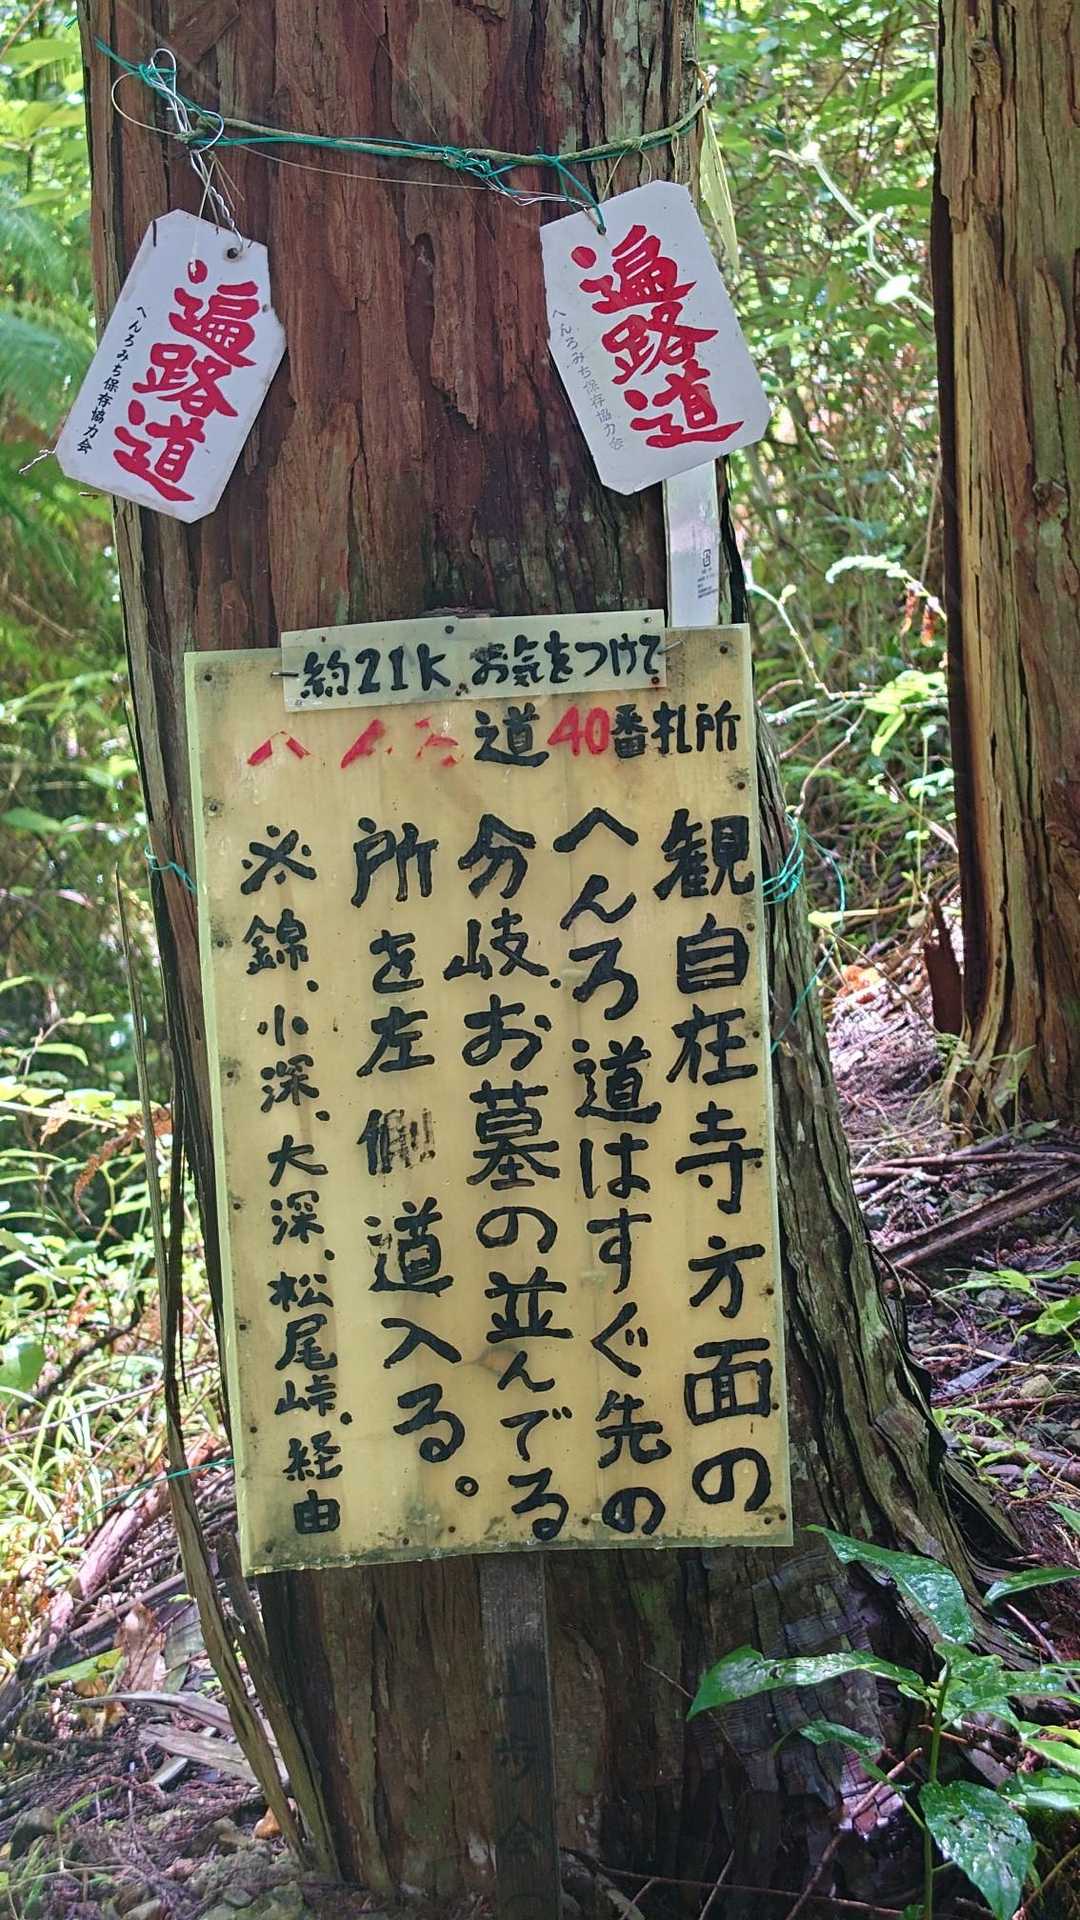 遍路道
へんろみち保存協力会
遍路道
へんろみち保存協力会
約21K お気をつけて
へんろ道40番札所
観自在寺方面の
へんろ道はすぐ先の
分岐、お墓の並んでる
所を左側道入る。
※錦、小深、大深、松尾峠、経由